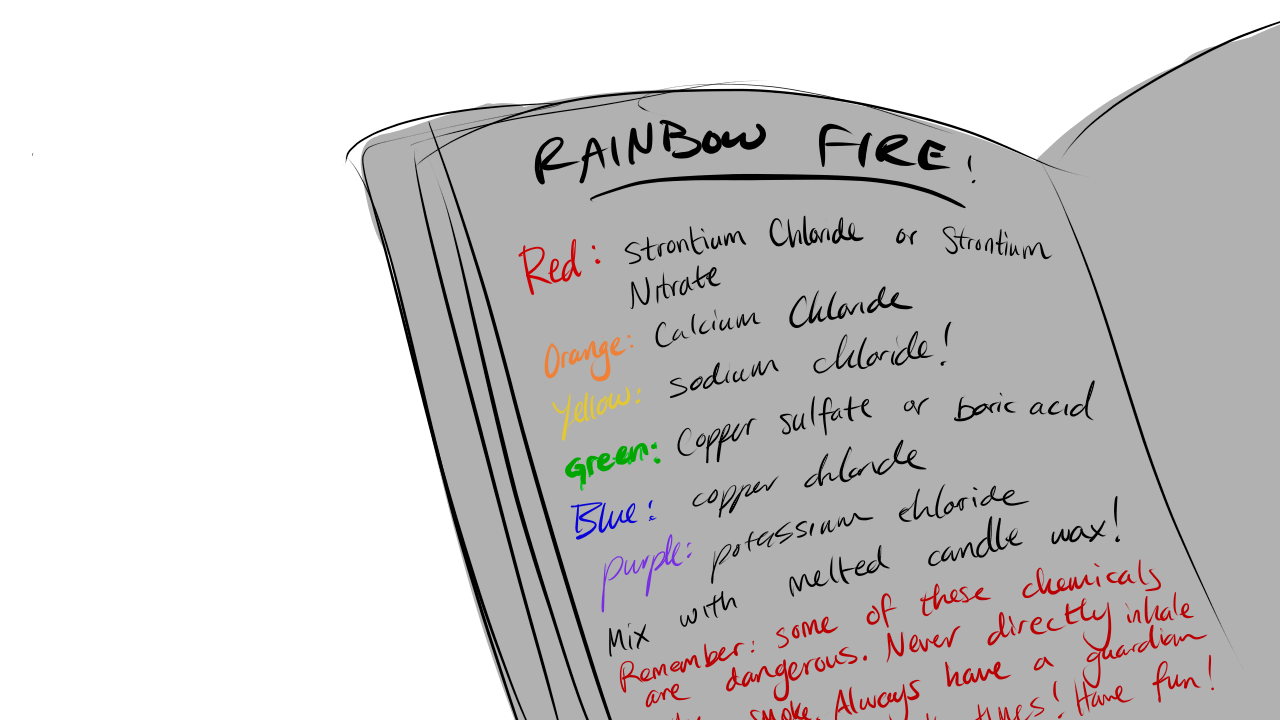 RAINBOW FIRE!
Red: Strontium Chloride or Strontium
Nitrate
Orange: Calcium Chloride
Yellow: sodium chloride!
Green: Copper sulfate or boric acid
Blue: copper chloride
purple: potassium chloride
Mix with melted candle wax!
Remember: some of these chemicals
are dangerous. Never directly inhale
smoke. Always have a guardian
times! Have fun!